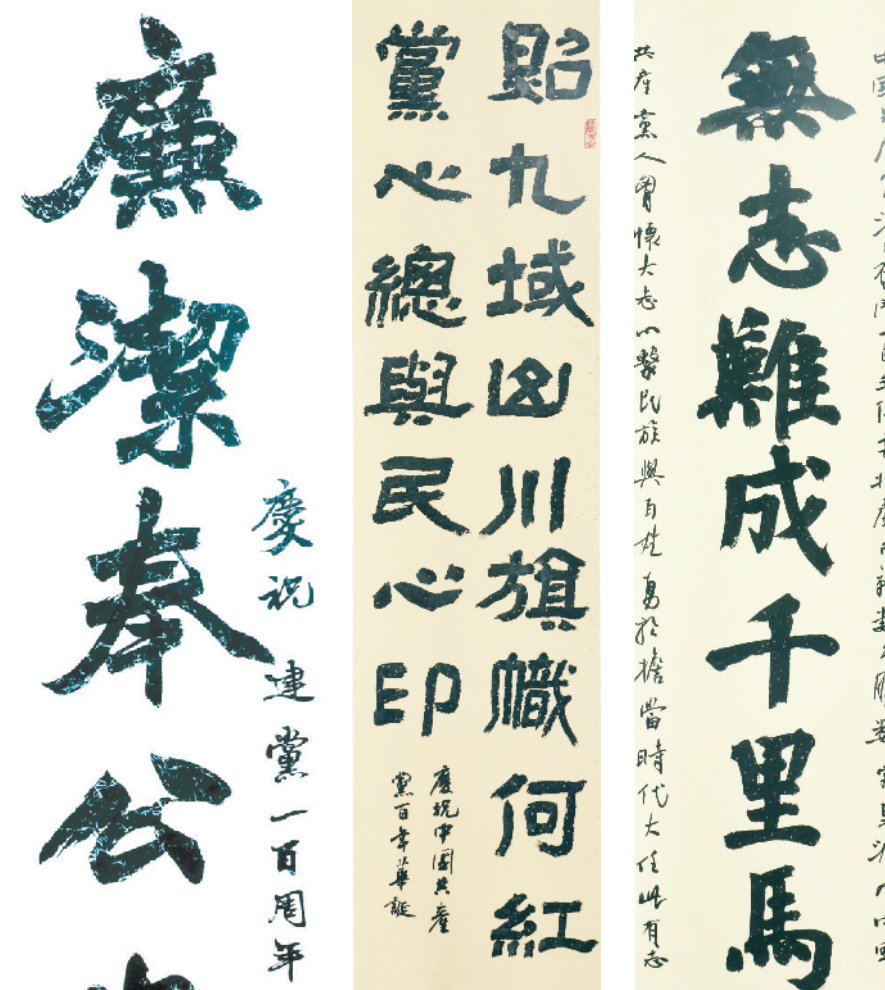 廉潔奉公
慶祝建黨一百周年
貽九域山川旗幟何紅
黨心總與民心印
慶祝中國共產
黨百年華誕
無志難成千里馬
共產黨人胷懷大志心繫民族與百姓勇於擔當時代大任此有志